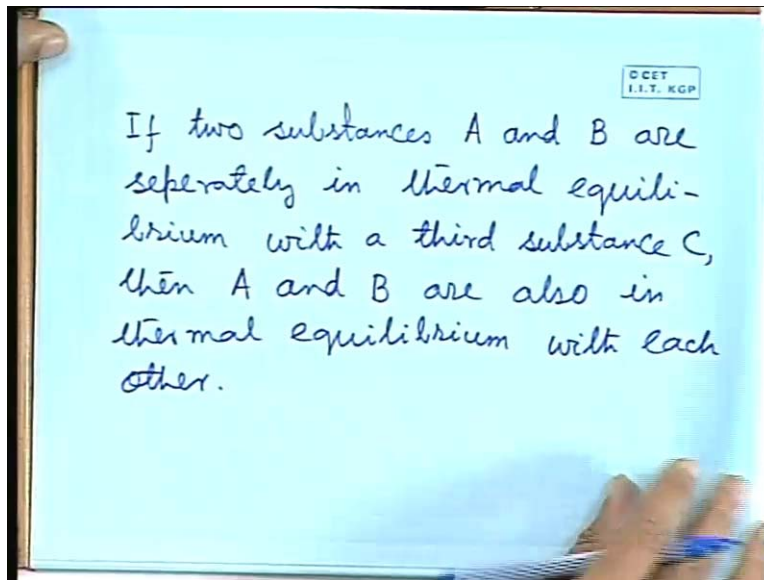 © CET
I.I.T. KGP
If two substances A and B are
seperately in thermal equili-
brium with a third substance C,
then A and B are also in
thermal equilibrium with each
other.